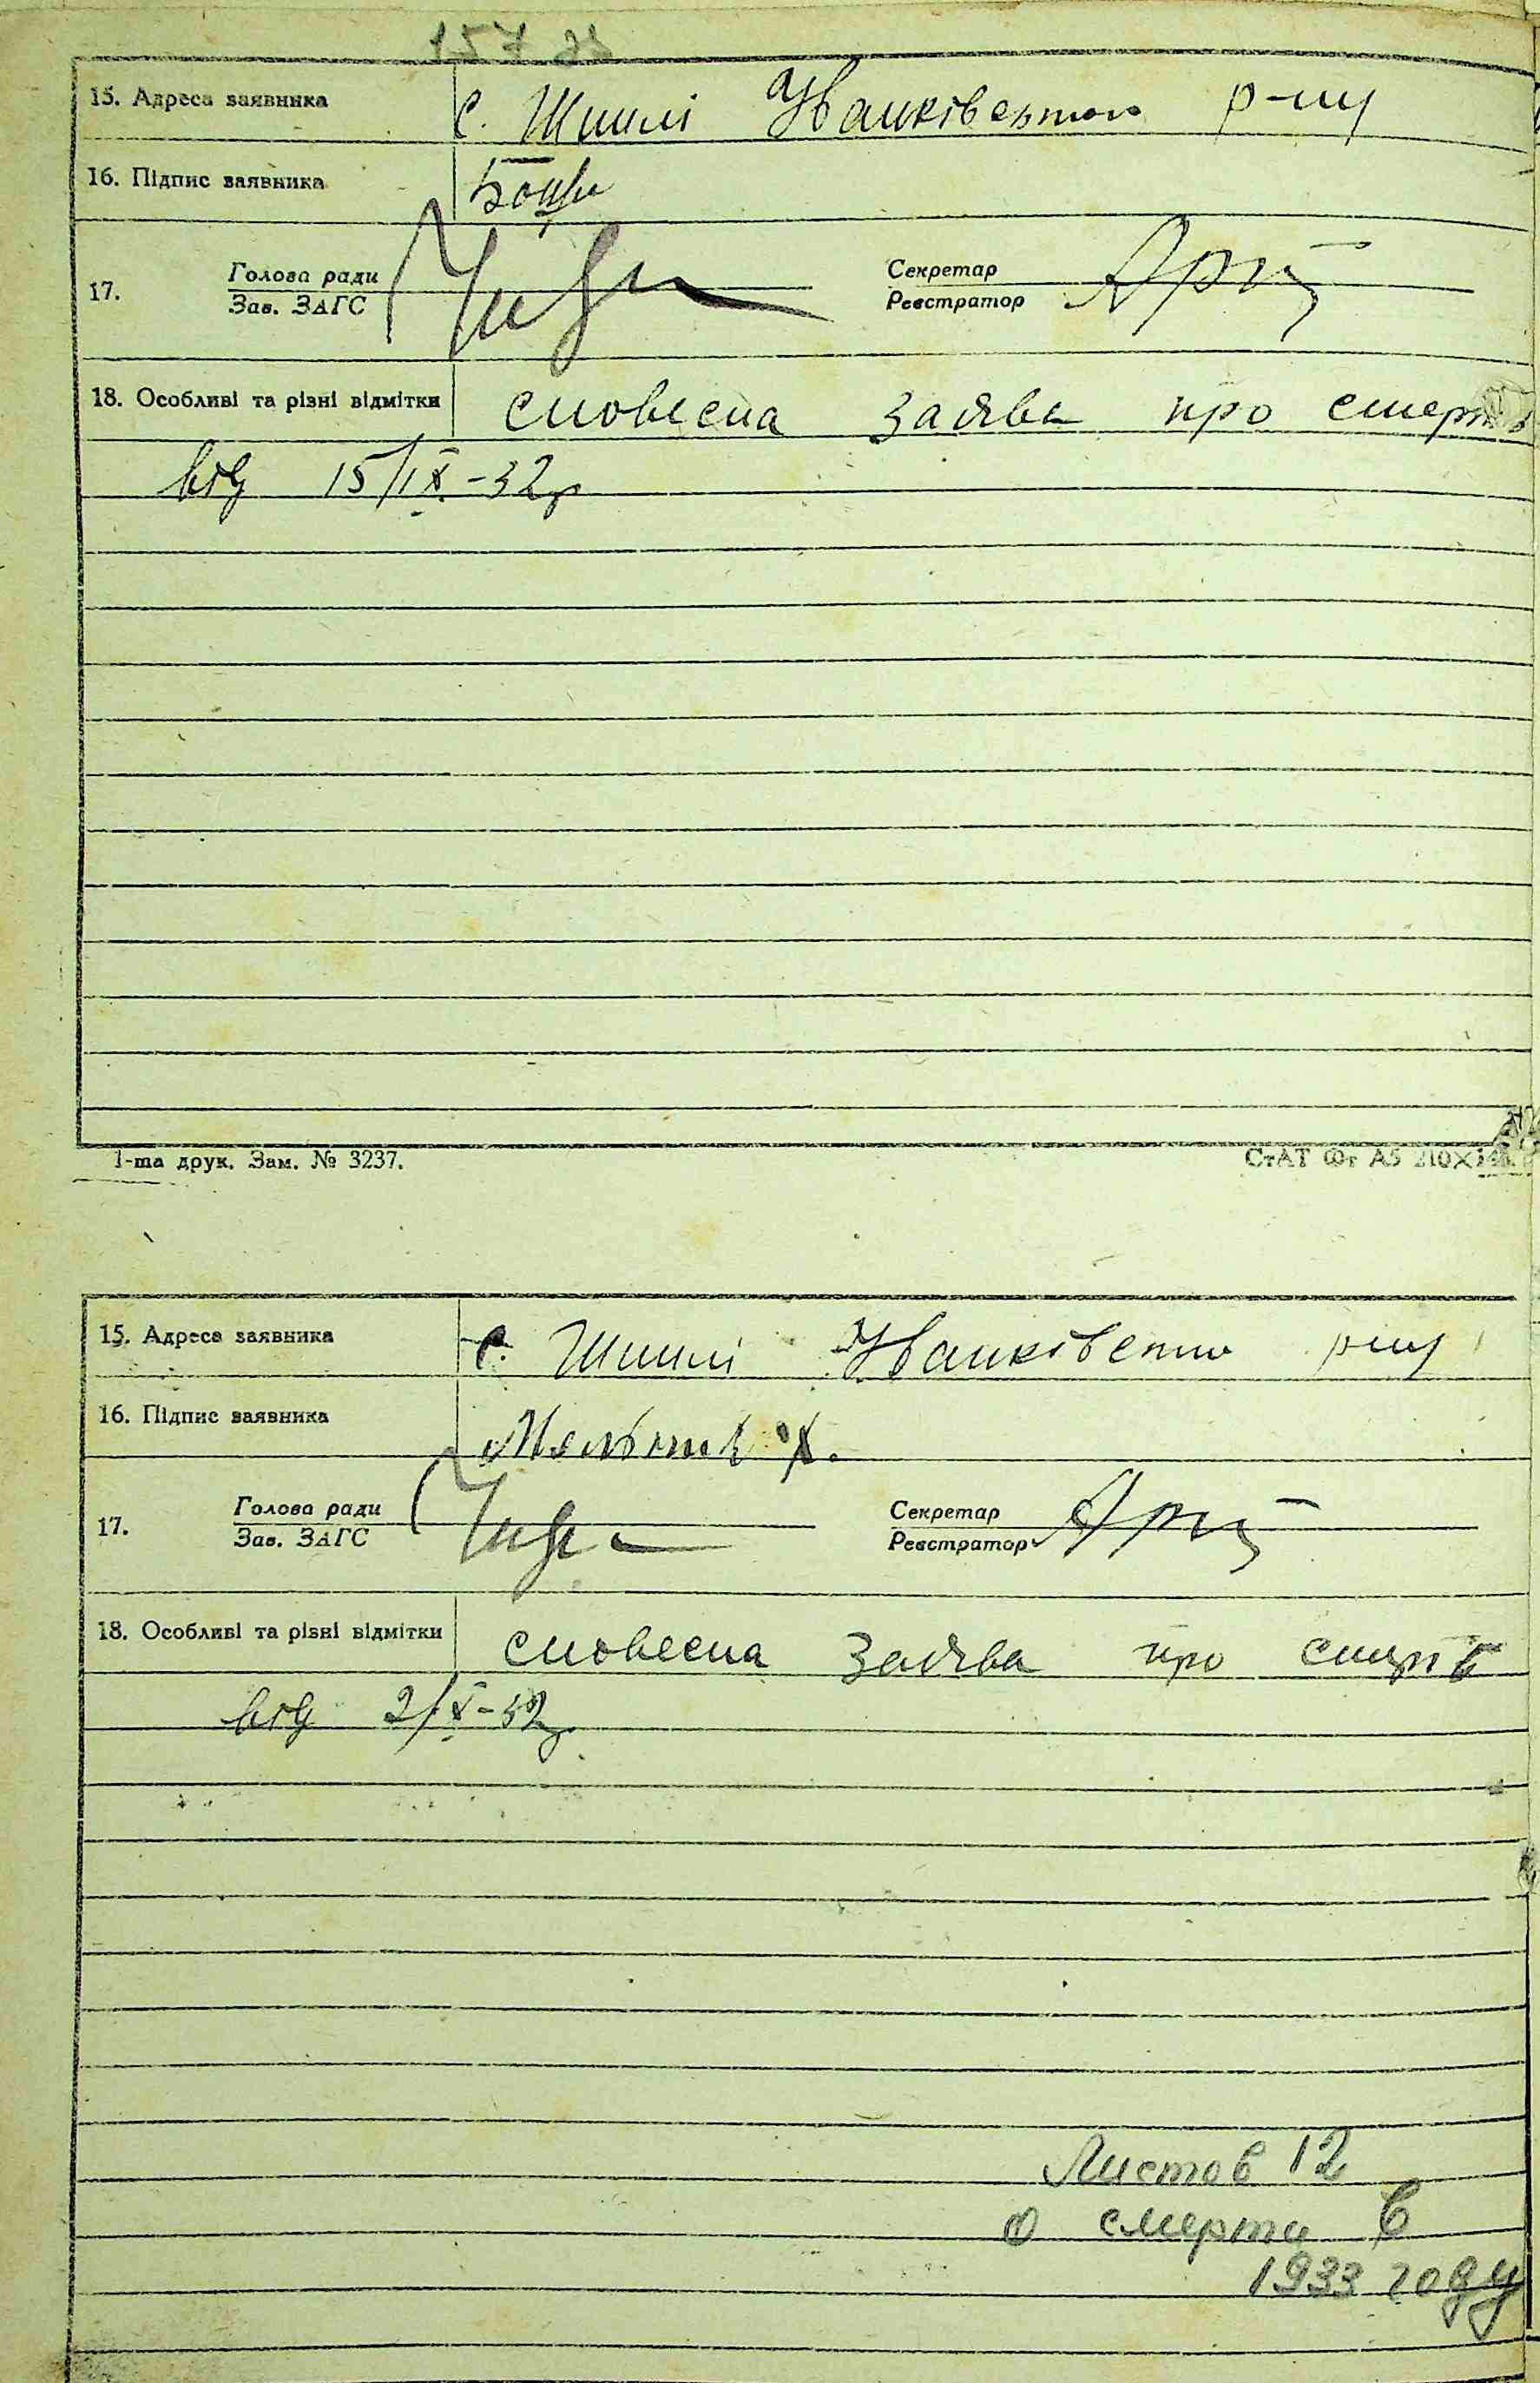 157
15. Адреса заявника с. Шпилі Иванківського р-ну
16. Підпис заявника
17. Голова ради Секретар
Зав. ЗАГС Реєстратор
18. Особливі та різні відмітки словесна заява про смерть
від 15/IX-32р
1-ша друк. Зам. № 3237. СтАТ Фт А5 210×148
15. Адреса заявника с. Шпилі Иванківсько р-ну
16. Підпис заявника
17. Голова ради Секретар
Зав. ЗАГС Реєстратор
18. Особливі та різні відмітки словесна заява про смерть
від 2/X-32р
Листов 12
о смерти в
1933 году